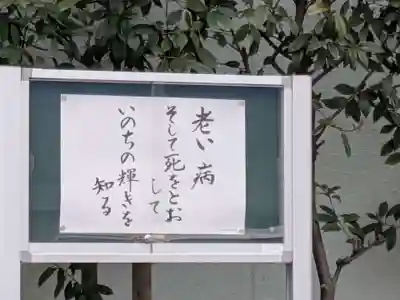 老い 病
そして死をとお
して
いのちの輝きを
知る